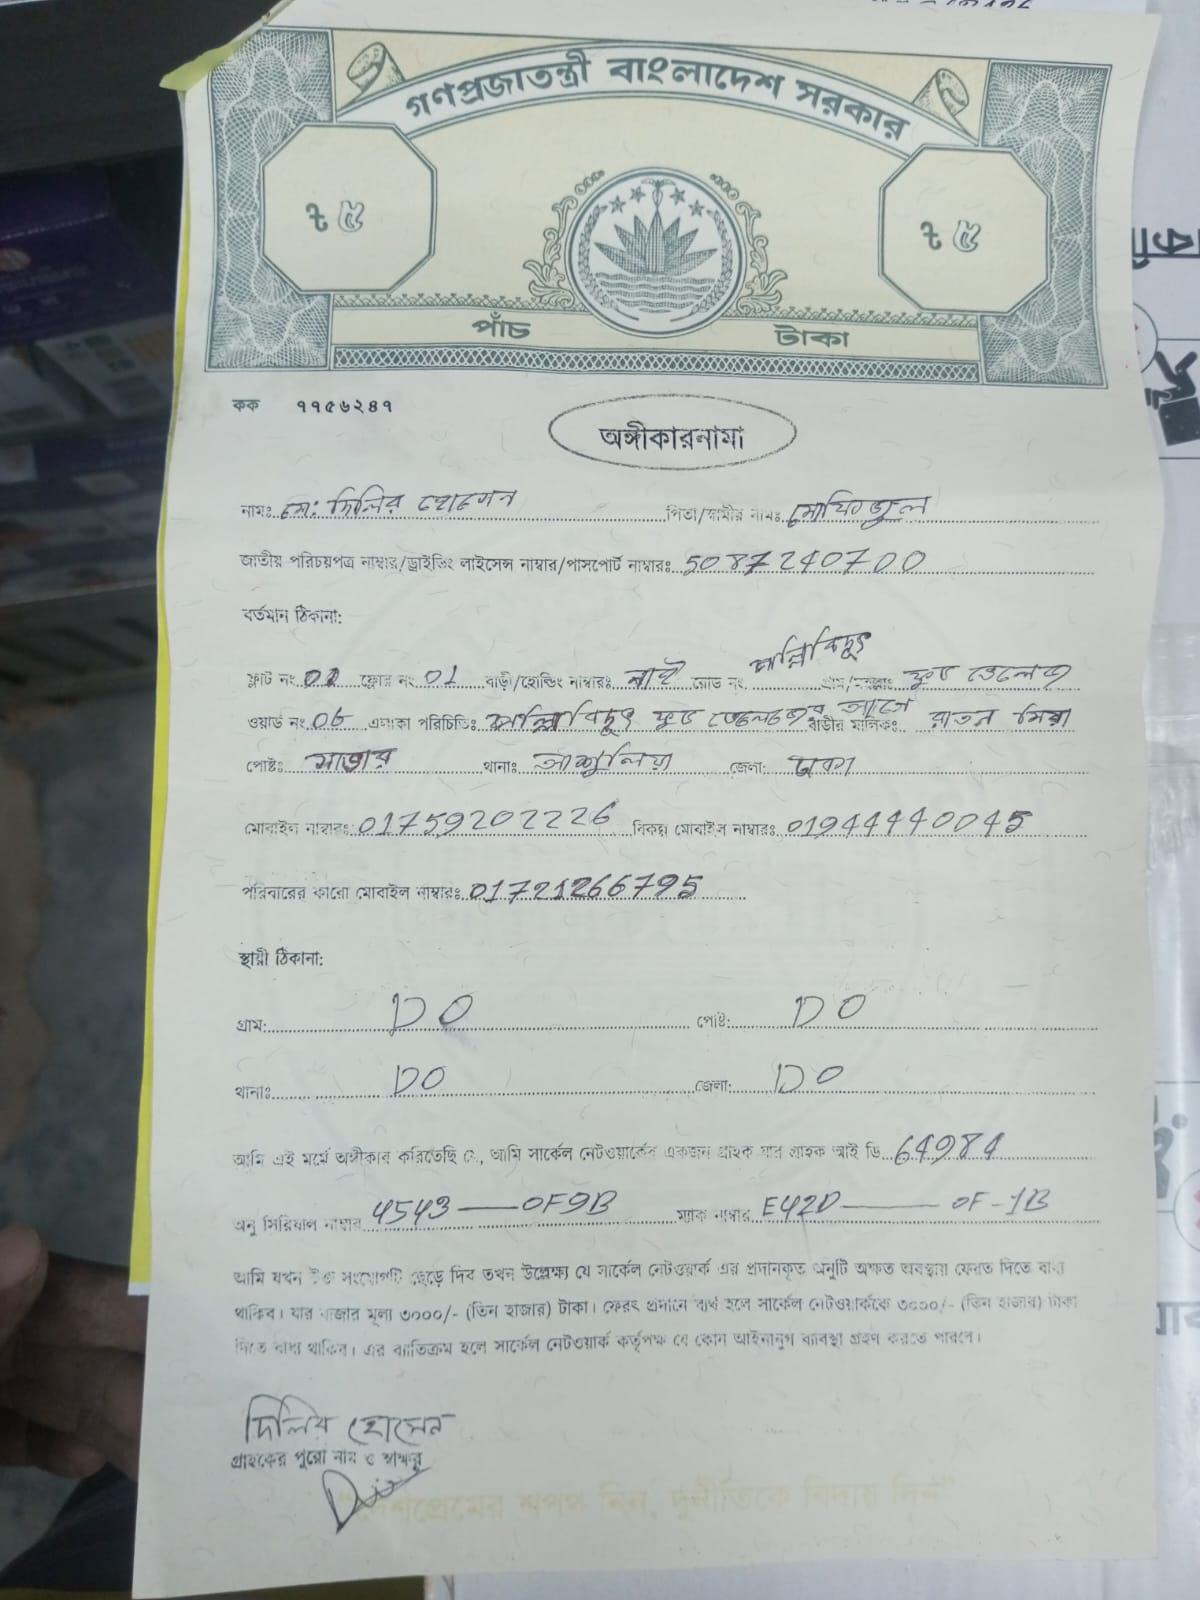 গণপ্রজাতন্ত্রী বাংলাদেশ সরকার
৳ ৫
৳ ৫
পাঁচ টাকা
কক ৭৭৫৬২৪৭
অঙ্গীকারনামা
নামঃ মো: দিলির হোসেন পিতা/স্বামীর নামঃ মোফিজুল
জাতীয় পরিচয়পত্র নাম্বার/ড্রাইভিং লাইসেন্স নাম্বার/পাসপোর্ট নাম্বারঃ 5087240700
বর্তমান ঠিকানা:
পল্লিবিদ্যুৎ
ফ্লাট নং 02 ফ্লোর নং 01 বাড়ী/হোল্ডিং নাম্বারঃ নাই রোড নং গ্রাম/মহল্লাঃ ফুড ভেলেজ
ওয়ার্ড নং 06 এলাকা পরিচিতিঃ পল্লিবিদ্যুৎ ফুড ভেলেজের আগে বাড়ীর মালিকঃ রাতন মিয়া
পোষ্টঃ সাভার থানাঃ আশুলিয়া জেলা: ঢাকা
মোবাইল নাম্বারঃ 01759202226 বিকল্প মোবাইল নাম্বারঃ 01944440045
পরিবারের কারো মোবাইল নাম্বারঃ 01721266795
স্থায়ী ঠিকানা:
গ্রাম: DO পোষ্ট: DO
থানাঃ DO জেলা: DO
আমি এই মর্মে অঙ্গীকার করিতেছি যে, আমি সার্কেল নেটওয়ার্কের একজন গ্রাহক যার গ্রাহক আই ডি 64984
অনু সিরিয়াল নাম্বার 4543 — 0F9B ম্যাক নাম্বার E42D — 0F-1B
আমি যখন উক্ত সংযোগটি ছেড়ে দিব তখন উল্লেক্ষ্য যে সার্কেল নেটওয়ার্ক এর প্রদানকৃত অনুটি অক্ষত অবস্থায় ফেরত দিতে বাধ্য
থাকিব। যার বাজার মূল্য ৩০০০/- (তিন হাজার) টাকা। ফেরৎ প্রদানে ব্যর্থ হলে সার্কেল নেটওয়ার্ককে ৩০০০/- (তিন হাজার) টাকা
দিতে বাধ্য থাকিব। এর ব্যতিক্রম হলে সার্কেল নেটওয়ার্ক কর্তৃপক্ষ যে কোন আইনানুগ ব্যাবস্থা গ্রহণ করতে পারবে।
দিলির হোসেন
গ্রাহকের পুরো নাম ও স্বাক্ষর
"দেশপ্রেমের শপথ নিন, দুর্নীতিকে বিদায় দিন"